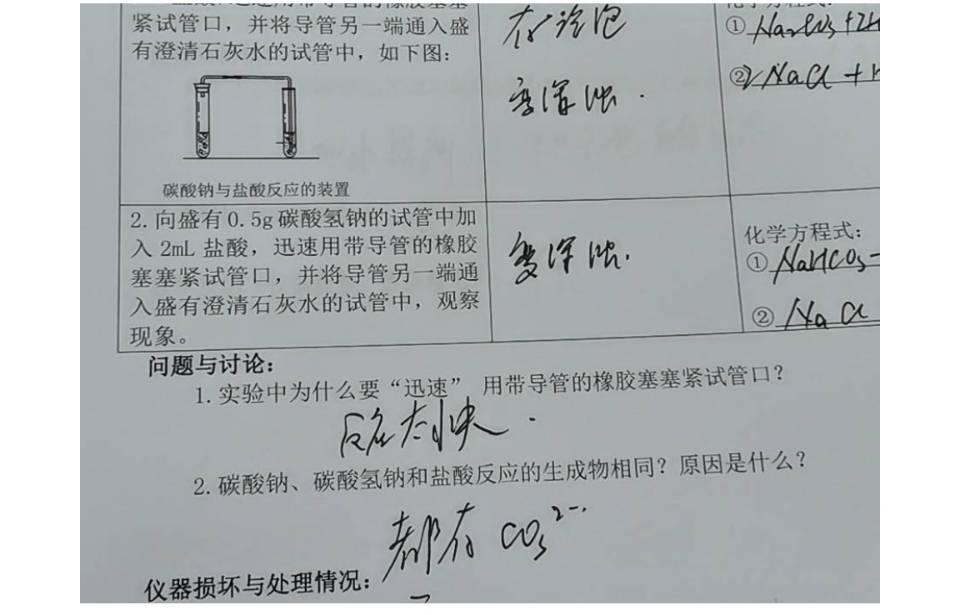 紧试管口，并将导管另一端通入盛
有澄清石灰水的试管中，如下图：
碳酸钠与盐酸反应的装置
有气泡
变浑浊.
①Na₂CO₃+2H
②NaCl+H
2.向盛有0.5g碳酸氢钠的试管中加
入2mL盐酸，迅速用带导管的橡胶
塞塞紧试管口，并将导管另一端通
入盛有澄清石灰水的试管中，观察
现象。
变浑浊.
化学方程式：
①NaHCO₃
②NaCl
问题与讨论：
1.实验中为什么要“迅速”用带导管的橡胶塞塞紧试管口？
反应太快.
2.碳酸钠、碳酸氢钠和盐酸反应的生成物相同？原因是什么？
都有CO₃²⁻.
仪器损坏与处理情况：